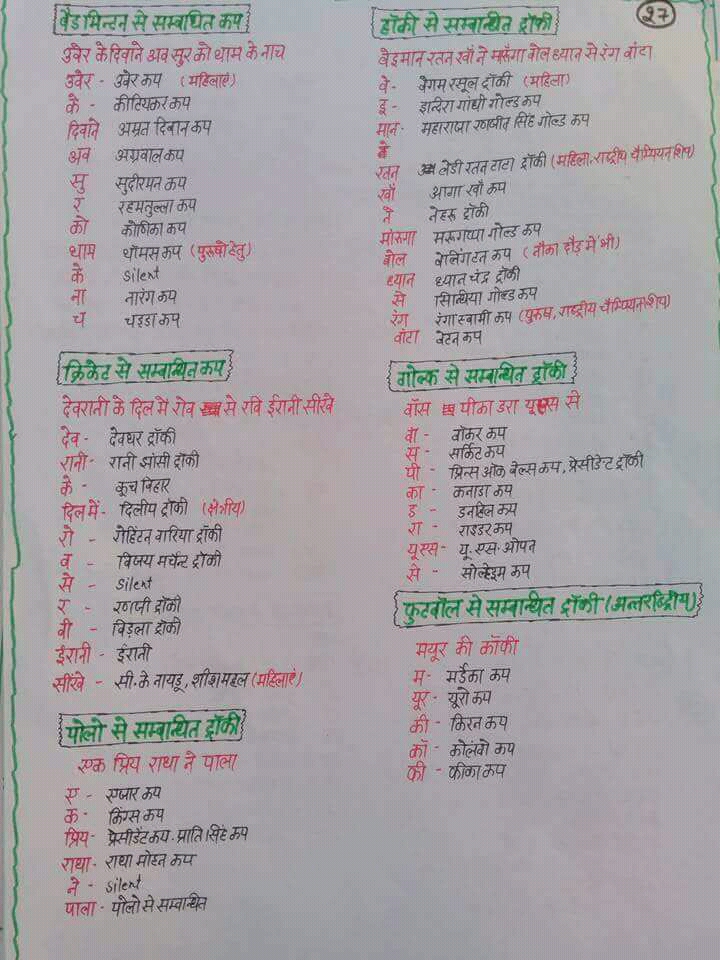 बैडमिन्टन से सम्बंधित कप
उवेर के दिवाने अव सुर को थाम के नाच
उवेर - उवेर कप (महिलाएं)
के - कीतियकर कप
दिवाने अमृत दिवान कप
अव अग्रवाल कप
सु सुदीरमन कप
र रहमतुल्ला कप
को कोणिका कप
थाम थॉमस कप (पुरूषो हेतु)
के silent
ना नारंग कप
च चड्डा कप
क्रिकेट से सम्बान्धित कप
देवरानी के दिल में रोव से रवि ईरानी सीखे
देव - देवधर ट्रॉकी
रानी - रानी झांसी ट्रॉकी
के - कूच विहार
दिल में - दिलीप ट्रॉकी (क्षेत्रीय)
रो - रोहिंटन वारिया ट्रॉकी
व - विजय मर्चेन्ट ट्रॉकी
से - silent
र - रणजी ट्रॉकी
वी - विड़ला ट्रॉकी
ईरानी - ईरानी
सींखे - सी.के नायडू, शीशमहल (महिलाएं)
पोलो से सम्बान्धित ट्रॉकी
एक प्रिय राधा ने पाला
ए - एजार कप
क - किंग्स कप
प्रिय - प्रेसीडेंट कप. प्राति सिंह कप
राधा - राधा मोहन कप
ने - silent
पाला - पोलो से सम्बान्धित
27
हॉकी से सम्बान्धित ट्रॉकी
वेइमान रतन खाँ ने मारूंगा वोल ध्यान से रंग वांटा
वे - वेगम रसूल ट्रॉकी (महिला)
इ - इन्दिरा गांधी गोल्ड कप
मान - महाराजा रणजीत सिंह गोल्ड कप
रतन लेडी रतन टाटा ट्रॉकी (महिला, राष्ट्रीय चैम्पियनशिप)
खाँ आगा खाँ कप
ने नेहरू ट्रॉकी
मांरूगा मरूगप्पा गोल्ड कप
वोल वेलिंगटन कप (नौका दौड़ में भी)
ध्यान ध्यान चंद्र ट्रॉकी
से सिन्धिया गोल्ड कप
रंग रंगा स्वामी कप (पुरूष, राष्ट्रीय चैम्पियनशिप)
वांटा वेटन कप
गोल्फ से सम्बान्धित ट्रॉकी
वॉस पीका डरा यूएस से
वॉ - वॉकर कप
स - सर्किट कप
पी - प्रिन्स ऑफ वेल्स कप, प्रेसीडेन्ट ट्रॉकी
का - कनाडा कप
ड - डनहिल कप
रा - राइडर कप
यूएस - यू.एस.ओपन
से - सोल्हेइम कप
फुटवॉल से सम्बान्धित ट्रॉकी (अन्तर्राष्ट्रीय)
मयूर की कॉफी
म - मर्डेका कप
यूर - यूरो कप
की - किरन कप
कॉ - कोलंवो कप
फी - फीका कप